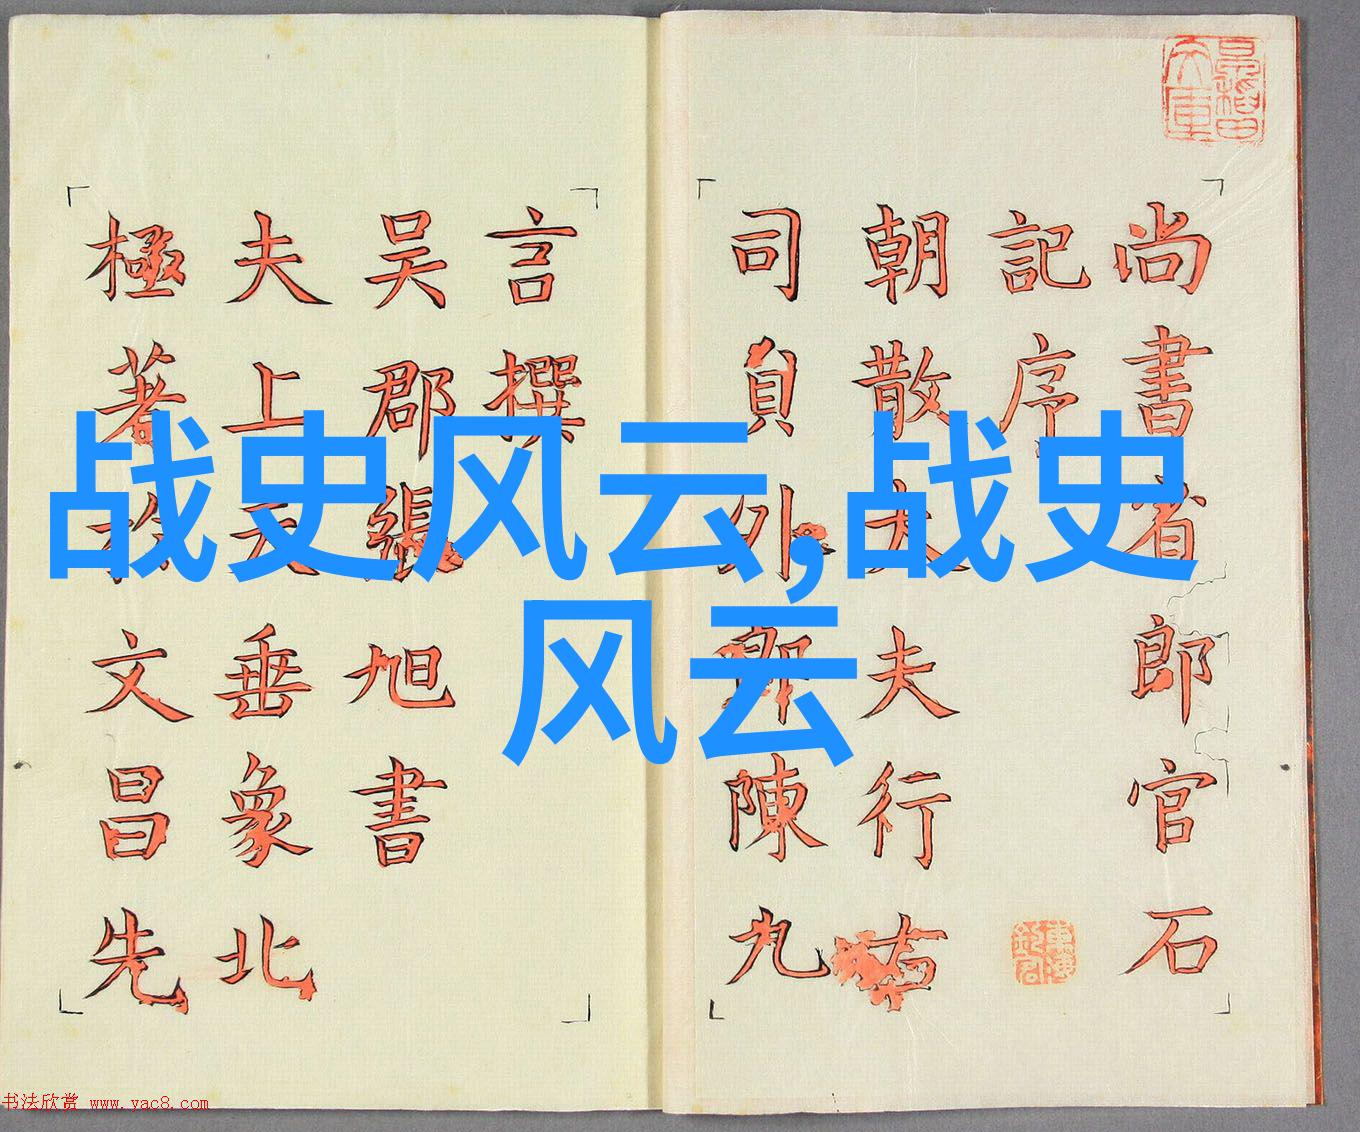 尚書省郎官石
記序
朝散大夫行右
司貟外郎陳九
言撰
吴郡張旭書
夫上天垂象北
極著於文昌先
战史风云,战史
风云
书法欣赏 www.yac8.com